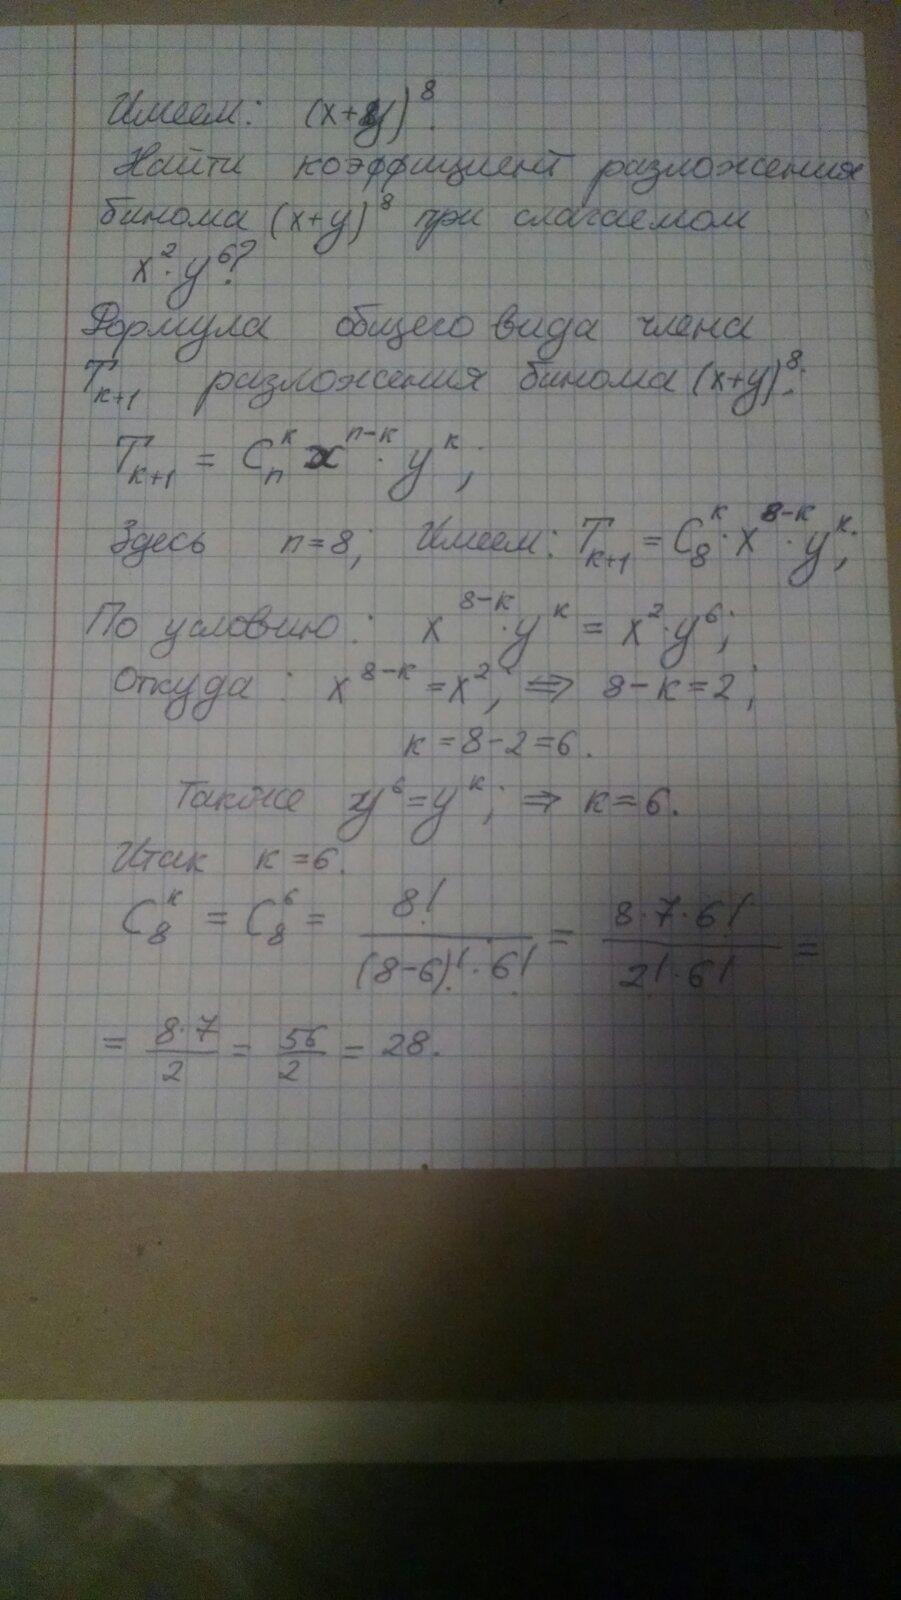 Имеем: (x+y)⁸.
Найти коэффициент разложения
бинома (x+y)⁸ при слагаемом
x²·y⁶?
Формула общего вида члена
Tₖ₊₁ разложения бинома (x+y)⁸:
Tₖ₊₁ = Cₙᵏ xⁿ⁻ᵏ · yᵏ;
Здесь n=8; Имеем: Tₖ₊₁ = C₈ᵏ · x⁸⁻ᵏ · yᵏ;
По условию: x⁸⁻ᵏ · yᵏ = x² · y⁶;
Откуда: x⁸⁻ᵏ = x²; ⇒ 8-к=2;
к=8-2=6.
Также y⁶=yᵏ; ⇒ к=6.
Итак к=6.
C₈ᵏ = C₈⁶ = 8!/((8-6)!·6!) = (8·7·6!)/(2!·6!) =
= (8·7)/2 = 56/2 = 28.